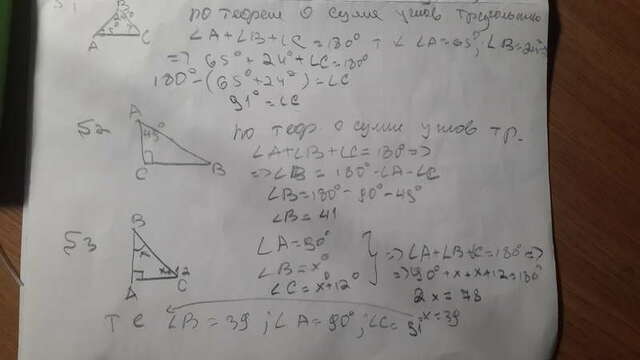 По теореме о сумме углов треугольника
∠A+∠B+∠C=180° т ∠A=65°; ∠B=24°
B
A C
=> 65°+24°+∠C=180°
180°-(65°+24°)=∠C
91°=∠C
52
A
49°
C B
По теор. о сумме углов тр.
∠A+∠B+∠C=180°=>
=>∠B=180°-∠A-∠C
∠B=180°-90°-49°
∠B=41
53
B
x
x+12
A C
∠A=90°
∠B=x°
∠C=x+12°
=>∠A+∠B+∠C=180°=>
=>90°+x+x+12=180°
2x=78
x=39
т е ∠B=39; ∠A=90°; ∠C=51°